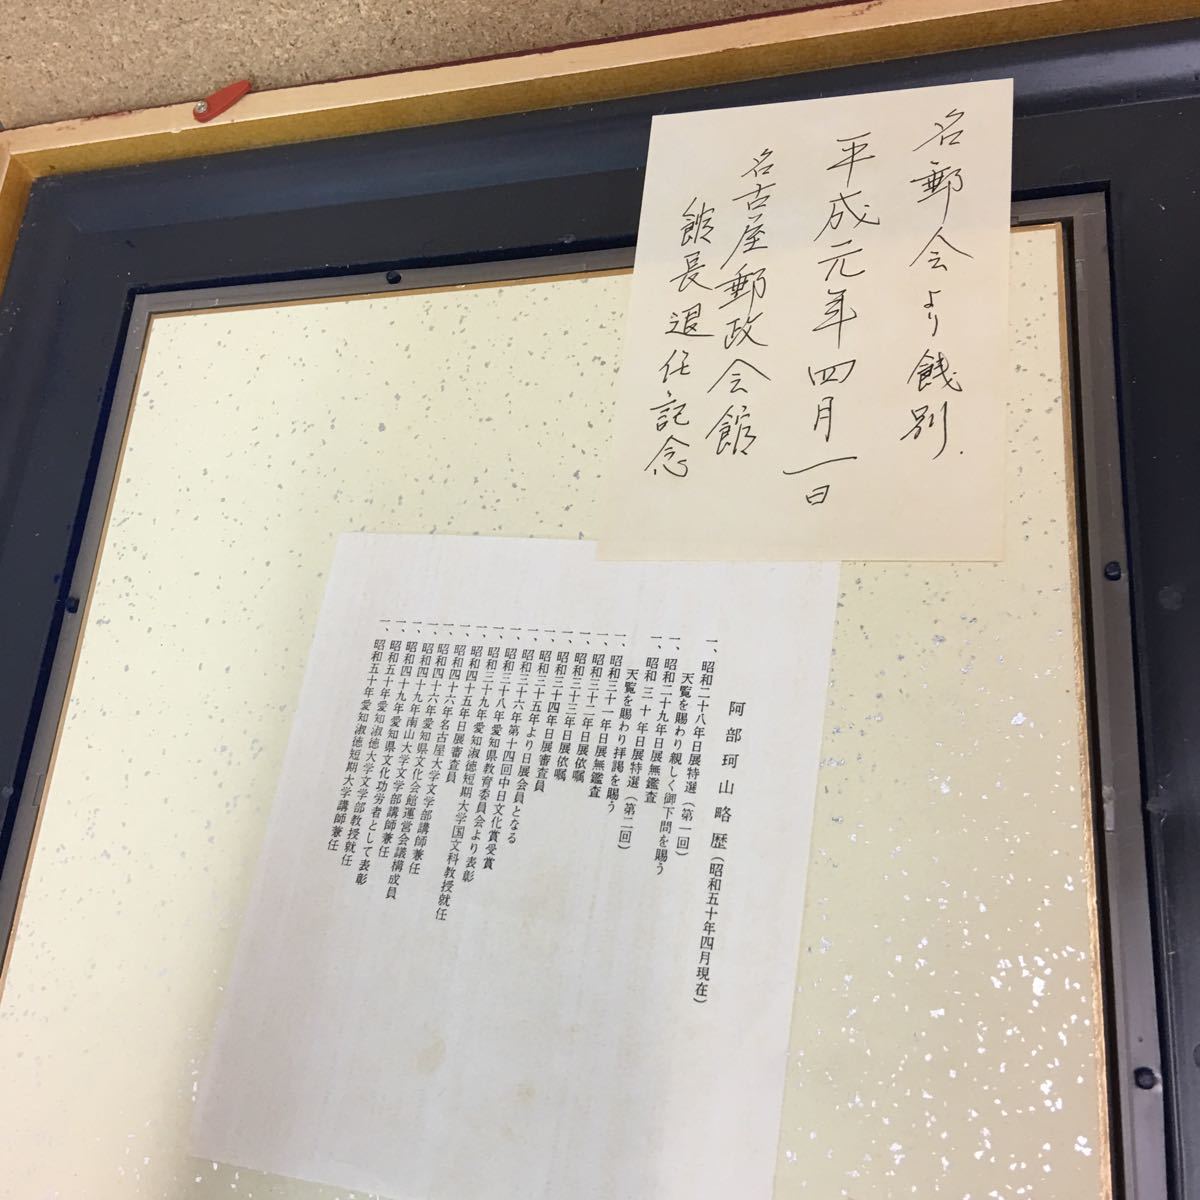 名郵会より餞別.
平成元年四月一日
名古屋郵政会館
館長退任記念
阿部珂山略歴(昭和五十年四月現在)
一、昭和二十八年日展特選(第一回)
天覧を賜わり親しく御下問を賜う
一、昭和二十九年日展無鑑査
一、昭和三十年日展特選(第二回)
天覧を賜わり拝謁を賜う
一、昭和三十一年日展無鑑査
一、昭和三十二年日展依嘱
一、昭和三十三年日展依嘱
一、昭和三十四年日展審査員
一、昭和三十五年より日展会員となる
一、昭和三十六年第十四回中日文化賞受賞
一、昭和三十八年愛知県教育委員会より表彰
一、昭和三十九年愛知淑徳短期大学国文科教授就任
一、昭和四十五年日展審査員
一、昭和四十六年名古屋大学文学部講師兼任
一、昭和四十六年愛知県文化会館運営会議構成員
一、昭和四十九年南山大学文学部講師兼任
一、昭和四十九年愛知県文化功労者として表彰
一、昭和五十年愛知淑徳大学文学部教授就任
一、昭和五十年愛知淑徳短期大学講師兼任